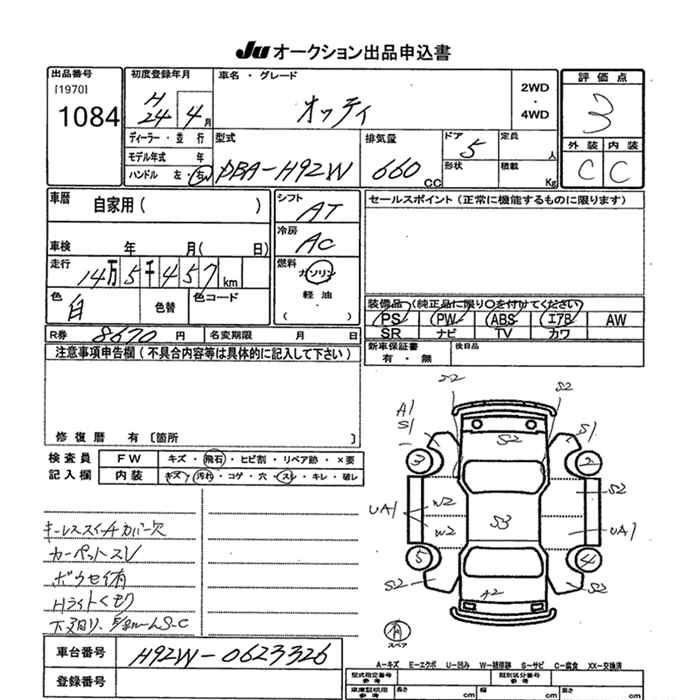 Ju オークション出品申込書
出品番号
[1970]
1084
初度登録年月
H 24 4月
車名・グレード
オッティ
2WD
・
4WD
評価点
3
外装 内装
C C
ディーラー・並行
モデル年式 年
ハンドル 左・右
型式
DBA-H92W
排気量
660 CC
ドア 5
形状
定員 人
積載 Kg
車歴
自家用( )
車検 年 月( 日)
走行
14万5千457km
色 白
色替
色コード
シフト
AT
冷房
AC
燃料
ガソリン
軽油
( ・ )
セールスポイント(正常に機能するものに限ります)
装備品(純正品に限り○を付けてください)
PS PW ABS エアB AW
SR ナビ TV カワ
R券 8670 円
名変期限 月 日
新車保証書
有・無
後日品
注意事項申告欄(不具合内容等は具体的に記入して下さい)
修復歴 有〔箇所 〕
検査員
記入欄
FW
キズ・飛石・ヒビ割・リペア跡・×要
内装
キズ・汚れ・コゲ・穴・スレ・キレ・破レ
キーレススイッチカバー欠
カーペットスレ
ボウセイ有
Hライトくもり
下廻り、S・C
車台番号
H92W-0623326
登録番号
S2
A1
S1
S2
S2
S1
2
S2
UA1
W2
W2
S3
UA1
5
4
S2
S2
スペア
A-キズ E-エクボ U-凹み W-補修跡 S-サビ C-腐食 XX-交換済
型式指定番号
参考
類別区分番号
参考
車庫証明用
参考
長さ cm
幅 cm
高さ cm